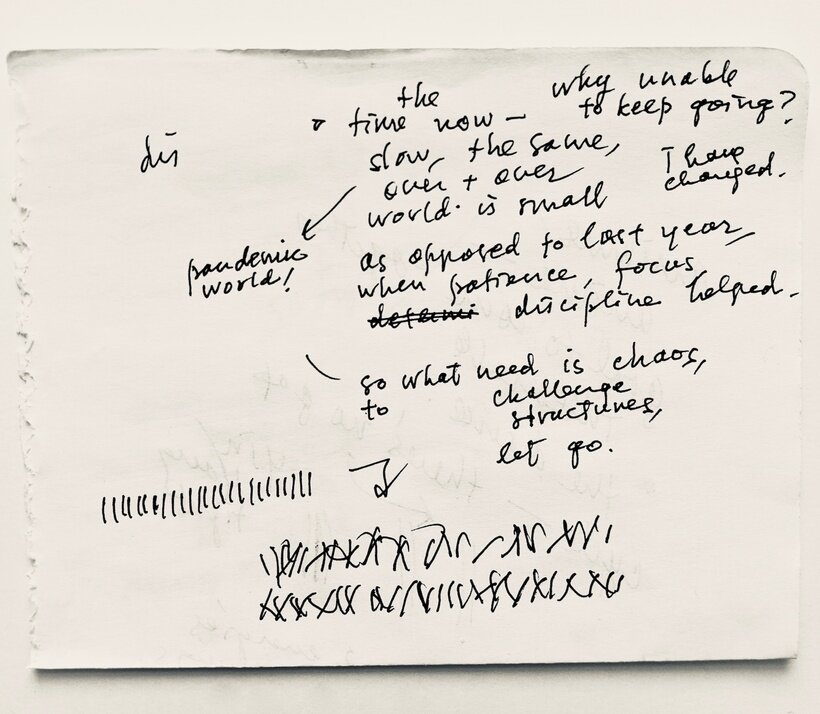 the
time now –
why unable
to keep going?
dis
slow, the same,
over + over
world. is small
I have
changed.
pandemic
world!
as opposed to last year,
when patience, focus
discipline helped.
so what need is chaos,
to challenge
structures,
let go.